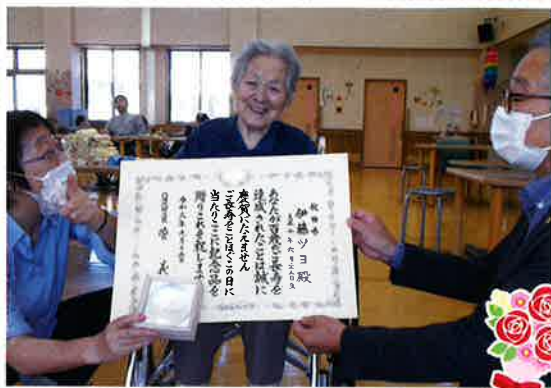 秋田県
伊藤ツヨ殿
あなたが百歳のご長寿を
達成されたことは誠に
慶賀にたえません
ご長寿をことほぐこの日に
当たりここに記念品を
贈りこれを祝します
菅 義